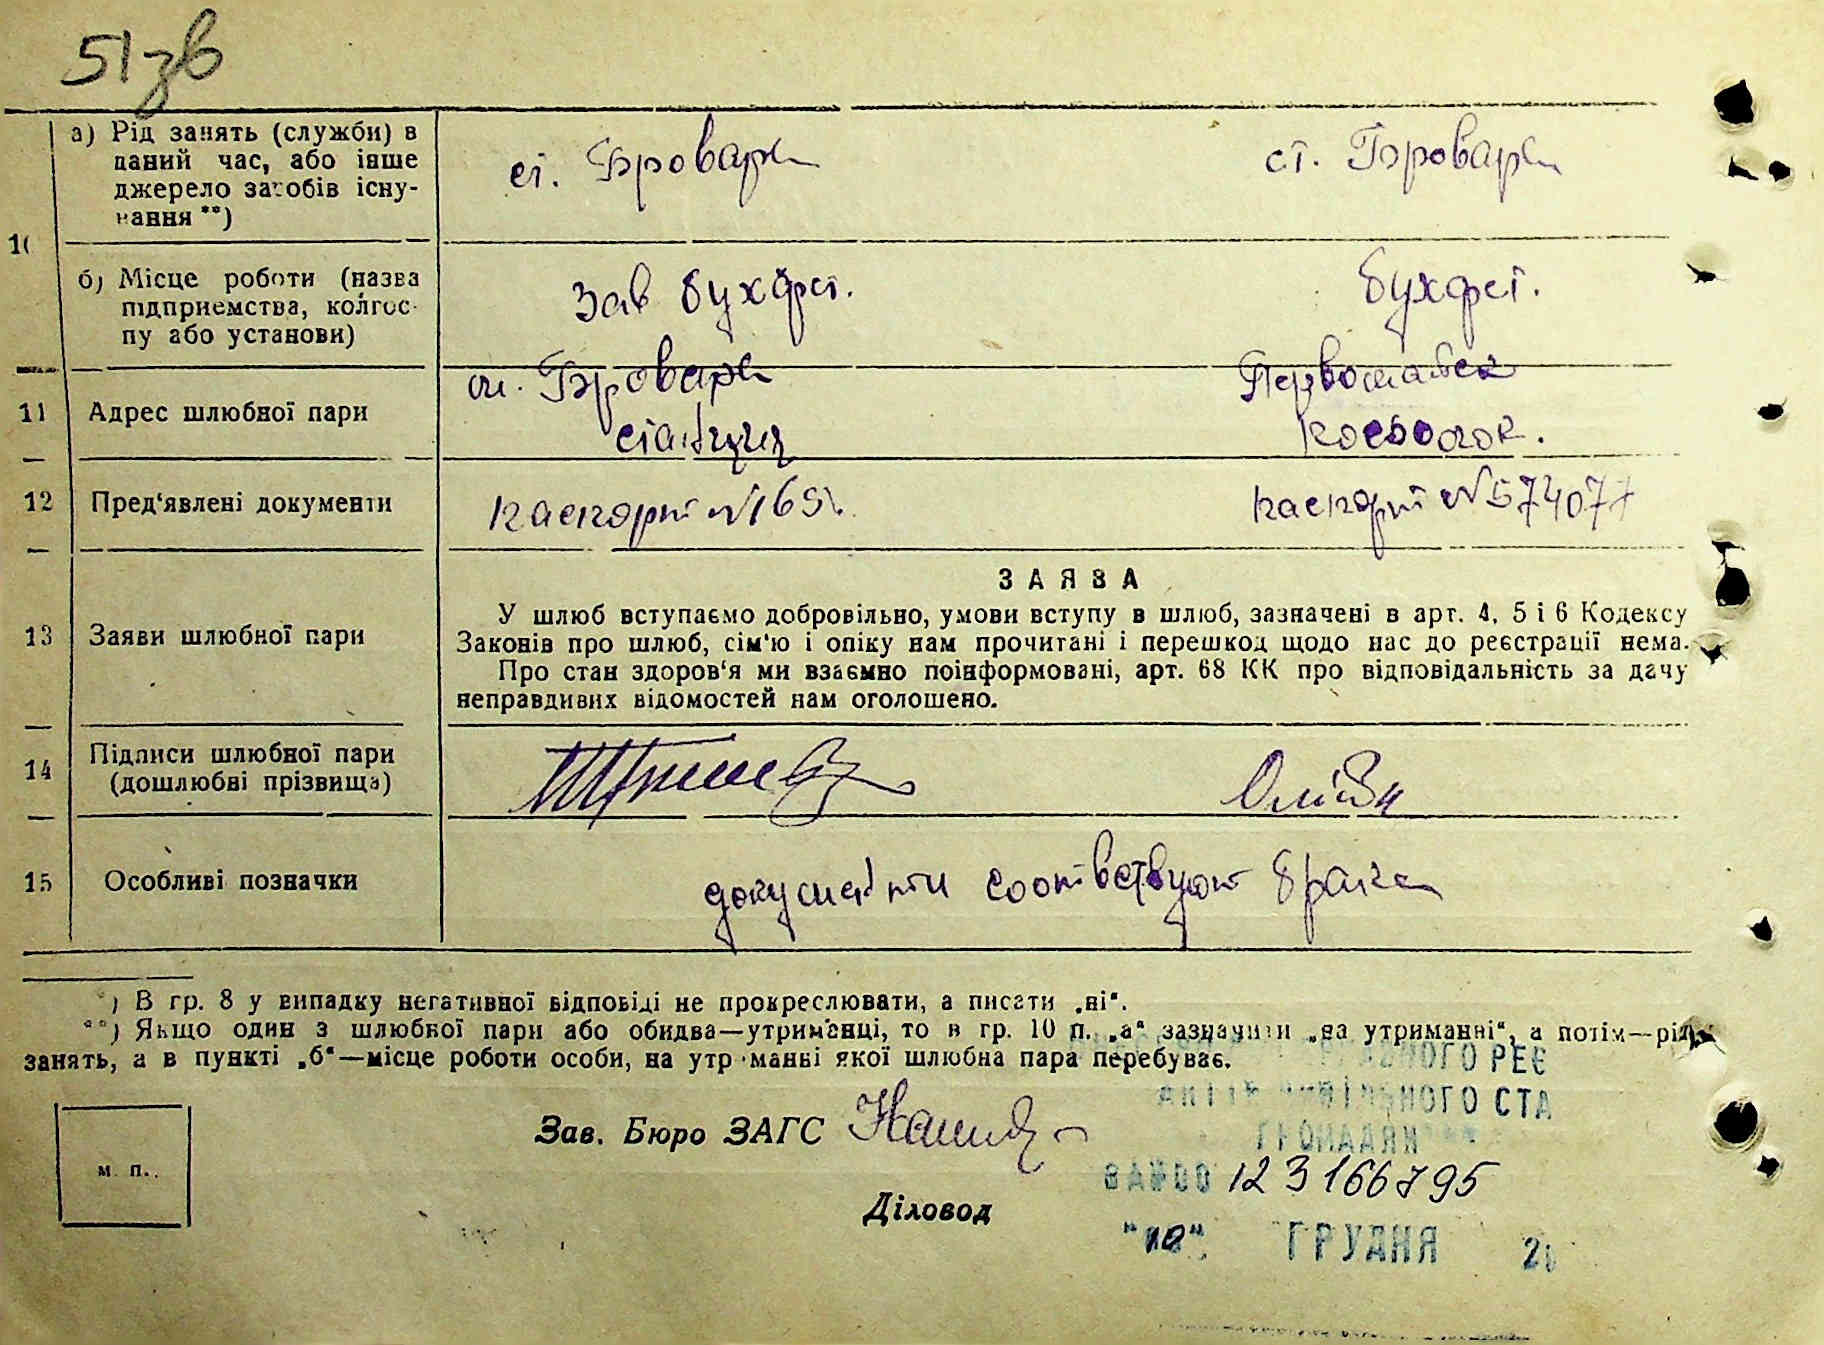 51зв
а) Рід занять (служби) в
даний час, або інше
джерело засобів існу-
вання **)
ст. Бровари
ст. Бровари
10
б) Місце роботи (назва
підприємства, колгос-
пу або установи)
Зав буфет.
буфет.
11
Адрес шлюбної пари
ст. Бровари
станция
поселок.
12
Пред'явлені документи
паспорт №
паспорт № 574077
ЗАЯВА
13
Заяви шлюбної пари
У шлюб вступаємо добровільно, умови вступу в шлюб, зазначені в арт. 4, 5 і 6 Кодексу
Законів про шлюб, сім'ю і опіку нам прочитані і перешкод щодо нас до реєстрації нема.
Про стан здоров'я ми взаємно поінформовані, арт. 68 КК про відповідальність за дачу
неправдивих відомостей нам оголошено.
14
Підписи шлюбної пари
(дошлюбні прізвища)
15
Особливі позначки
документи соотвствуют брака
*) В гр. 8 у випадку негативної відповіді не прокреслювати, а писати „ні“.
**) Якщо один з шлюбної пари або обидва—утриманці, то в гр. 10 п. „а“ зазначити „на утриманні“, а потім—рід
занять, а в пункті „б“—місце роботи особи, на утриманні якої шлюбна пара перебуває.
НОГО РЕЄ
АКТІВ ЦИВІЛЬНОГО СТА
Зав. Бюро ЗАГС
ГРОМАДЯН
м. п.
00123166795
Діловод
"10" ГРУДНЯ 20